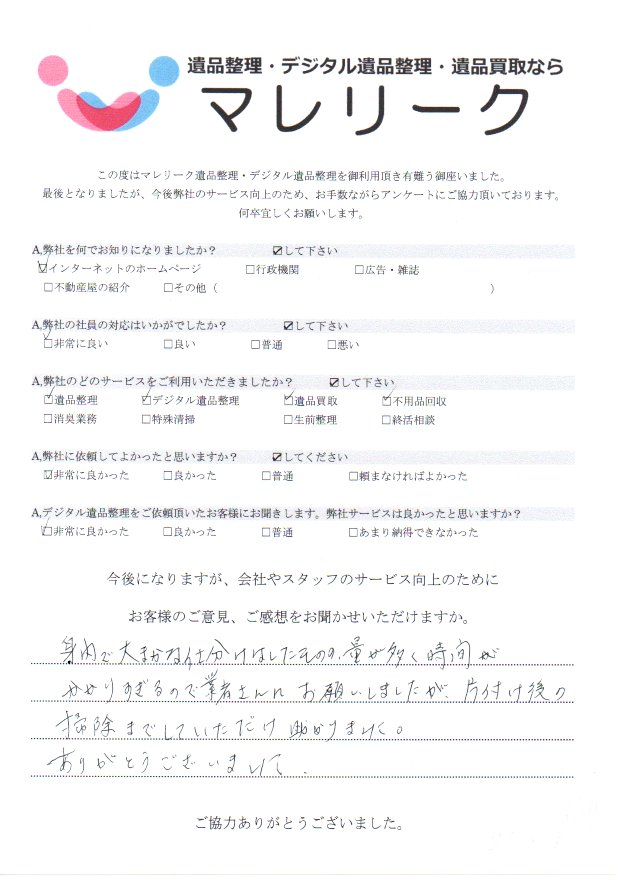 遺品整理・デジタル遺品整理・遺品買取なら
マレリーク
この度はマレリーク遺品整理・デジタル遺品整理を御利用頂き有難う御座いました。
最後となりましたが、今後弊社のサービス向上のため、お手数ながらアンケートにご協力頂いております。
何卒宜しくお願いします。
A,弊社を何でお知りになりましたか？ ☑して下さい
☑インターネットのホームページ □行政機関 □広告・雑誌
□不動産屋の紹介 □その他（ ）
A,弊社の社員の対応はいかがでしたか？ ☑して下さい
☑非常に良い □良い □普通 □悪い
A,弊社のどのサービスをご利用いただきましたか？ ☑して下さい
☑遺品整理 ☑デジタル遺品整理 ☑遺品買取 ☑不用品回収
□消臭業務 □特殊清掃 □生前整理 □終活相談
A,弊社に依頼してよかったと思いますか？ ☑してください
☑非常に良かった □良かった □普通 □頼まなければよかった
A,デジタル遺品整理をご依頼頂いたお客様にお聞きします。弊社サービスは良かったと思いますか？
☑非常に良かった □良かった □普通 □あまり納得できなかった
今後になりますが、会社やスタッフのサービス向上のために
お客様のご意見、ご感想をお聞かせいただけますか。
身内で大まかな仕分けはしたものの、量が多く時間が
かかりすぎるので業者さんに お願いしましたが、片付け後の
掃除までしていただけ 助かりました。
ありがとうございました.
ご協力ありがとうございました。